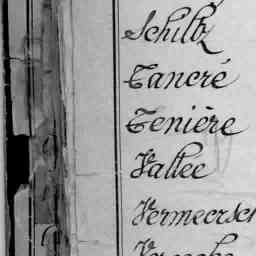 Schiltz
Tancré
Tenière
Vallee
Vermeersch